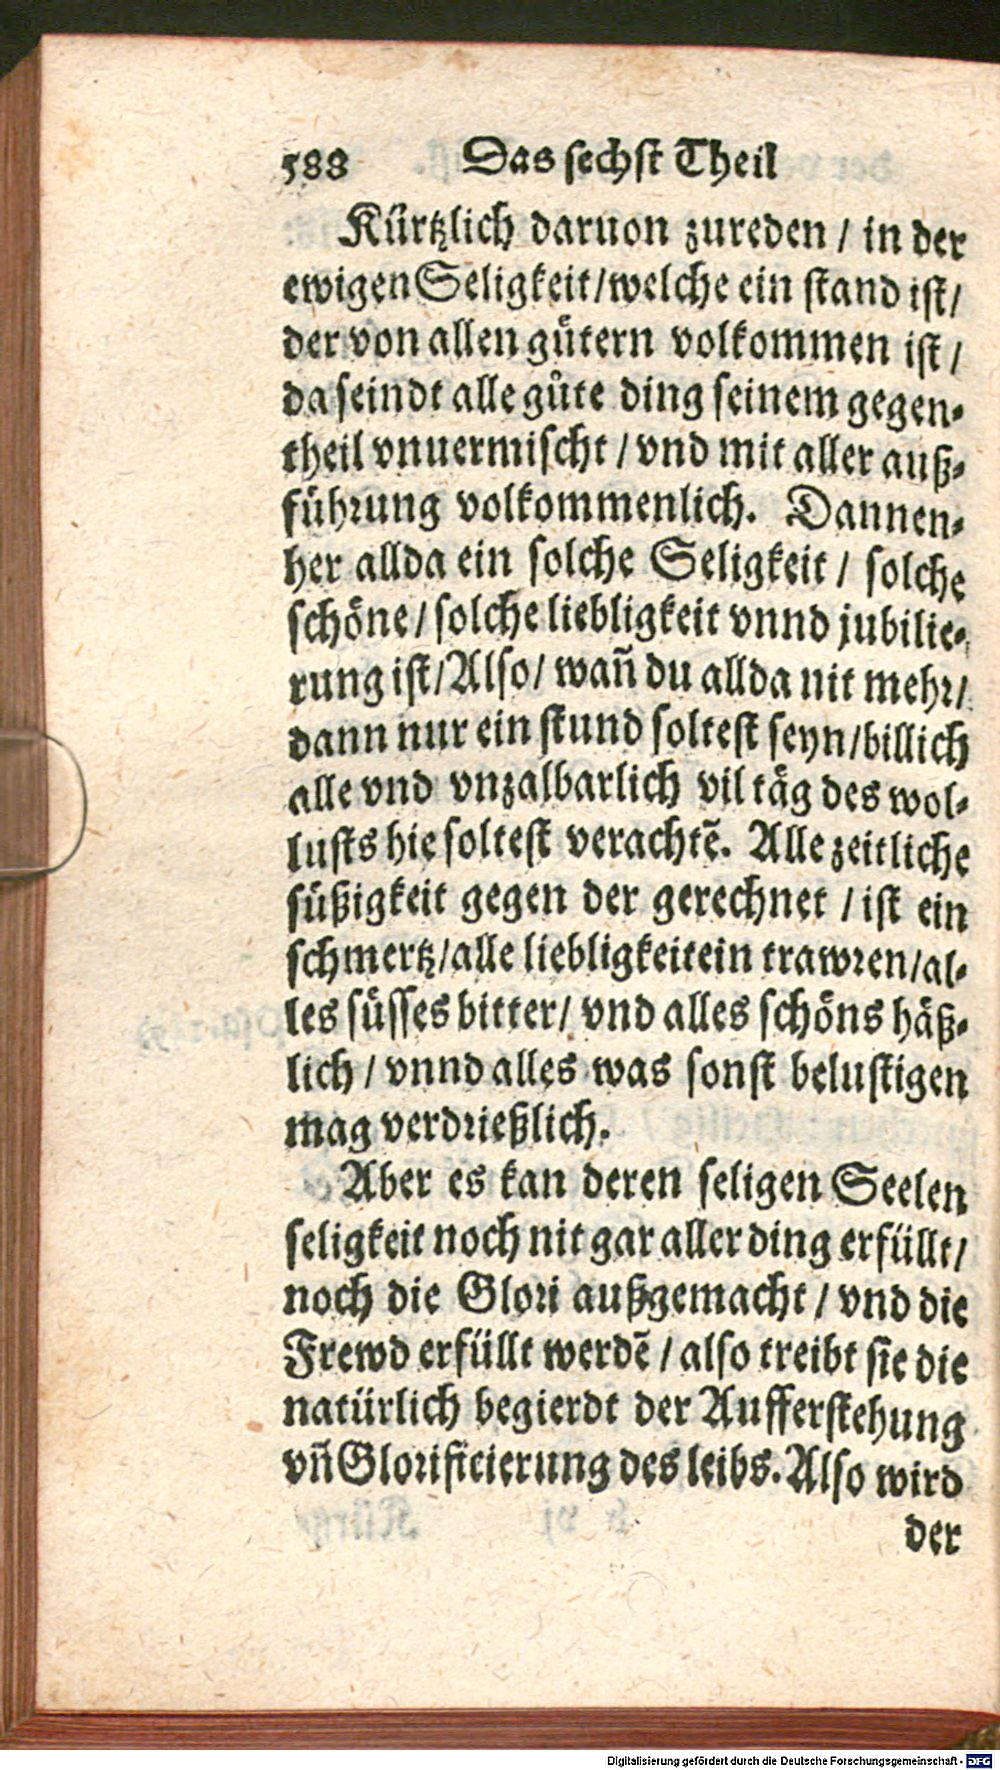 588 Das sechst Theil
Kürtzlich daruon zureden / in der
ewigen Seligkeit/welche ein stand ist/
der von allen gütern volkommen ist /
da seindt alle gůte ding seinem gegen-
theil vnuermischt / vnd mit aller auß-
führung volkommenlich. Dannen-
her allda ein solche Seligkeit / solche
schöne / solche liebligkeit vnnd jubilie-
rung ist/ Also/ wañ du allda nit mehr/
dann nur ein stund soltest seyn/billich
alle vnd vnzalbarlich vil täg des wol-
lusts hie soltest verachtẽ. Alle zeitliche
süßigkeit gegen der gerechnet / ist ein
schmertz/alle liebligkeit ein trawren/al-
les süsses bitter/ vnd alles schöns häß-
lich / vnnd alles was sonst belustigen
mag verdrießlich.
Aber es kan deren seligen Seelen
seligkeit noch nit gar aller ding erfüllt/
noch die Glori außgemacht / vnd die
Frewd erfüllt werdẽ / also treibt sie die
natürlich begierdt der Aufferstehung
vñ Glorificierung des leibs. Also wird
der
Digitalisierung gefördert durch die Deutsche Forschungsgemeinschaft - DFG